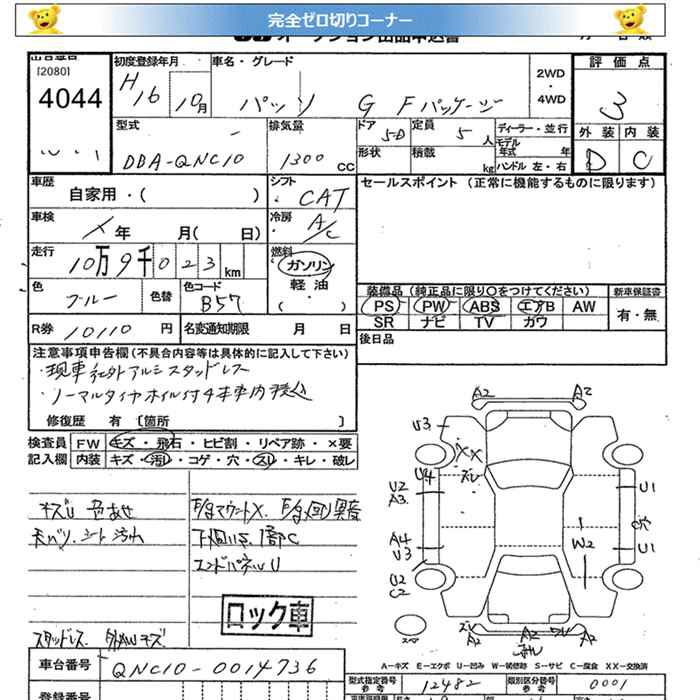 完全ゼロ切りコーナー
出品番号
[2080]
4044
初度登録年月
H16 10月
車名・グレード
パッソ G Fパッケージ
2WD
・
4WD
評価点
3
外装 内装
D C
型式
DBA-QNC10
排気量
1300 CC
ドア 5D
形状
定員 5 人
積載 kg
ディーラー・並行
モデル年式 年
ハンドル 左・右
車歴
自家用・( )
シフト
CAT
車検
X 年 月( 日)
冷房
A/C
走行
10万9千023 km
燃料
ガソリン
軽油
( )
色
ブルー
色替
色コード
B57
R券 10110 円
名変通知期限 月 日
セールスポイント (正常に機能するものに限ります)
装備品 (純正品に限り○をつけてください)
新車保証書
PS PW ABS エアB AW
有・無
SR ナビ TV カワ
後日品
注意事項申告欄(不具合内容等は具体的に記入して下さい)
・現車社外アルミスタッドレス
・ノーマルタイヤホイル付4本車内積込
修復歴 有 [箇所 ]
検査員
記入欄
FW キズ・飛石・ヒビ割・リペア跡・×要
内装 キズ・汚れ・コゲ・穴・スレ・キレ・破レ
キズU 色あせ
シート汚れ
下廻りS.1部C
エンドパネルU
ロック車
スタッドレス. 外AWキズ
A2 A2
U3
XX
ズレ
U4
U2
A3
U1
A4
U3
W2
U1
U2
C2
スペア
A2 A2
A-キズ E-エクボ U-凹み W-補修跡 S-サビ C-腐食 XX-交換済
車台番号
QNC10-0014736
登録番号
型式指定番号
参考
12482
類別区分番号
参考
0001